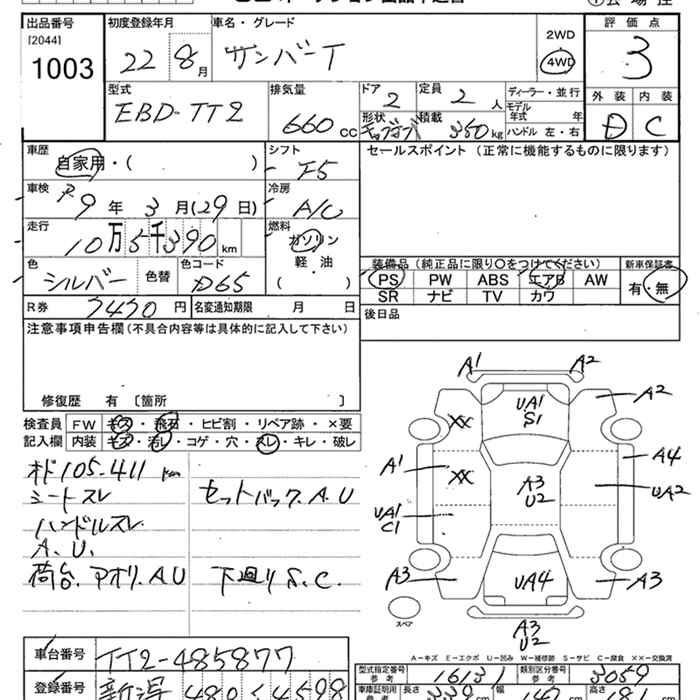 出品番号 初度登録年月 車名・グレード 評価点
[2044]
1003
22 8月 サンバーT
2WD
4WD
3
外装 内装
D C
型式 排気量 ドア 定員 ディーラー・並行
EBD-TT2 660cc 2 2人
モデル年式 年
形状 積載 350kg ハンドル 左・右
車歴 シフト セールスポイント(正常に機能するものに限ります)
自家用・( ) F5
車検 冷房
9年3月(29日) A/C
走行 燃料
10万5千390km ガソリン
軽・油
( )
色 色替 色コード
シルバー D65
装備品(純正品に限り〇をつけてください) 新車保証書
PS PW ABS エアB AW 有・無
SR ナビ TV カワ
R券 円 名変通知期限 月 日
後日品
注意事項申告欄(不具合内容等は具体的に記入して下さい)
修復歴 有 〔箇所 〕
検査員 FW キズ・飛石・ヒビ割・リペア跡・×要
記入欄 内装 キズ・汚レ・コゲ・穴・スレ・キレ・破レ
105-411 km
シートスレ セットバック.A.U
ハンドルスレ
A.U.
荷台.アオリ.AU 下廻りS.C.
A1 A2
UA1
S1
A2
XX
A1 XX A3
U2
A4
UA2
UA1
C1
A3 UA4 A3
スペア
A3
U2
A-キズ E-エクボ U-凹み W-補修跡 S-サビ C-腐食 ××-交換済
車台番号 TT2-485877
型式指定番号 参考 16131 類別区分番号 参考 3059
登録番号 新潟 480
車庫証明用 参考 長さ 幅 高さ